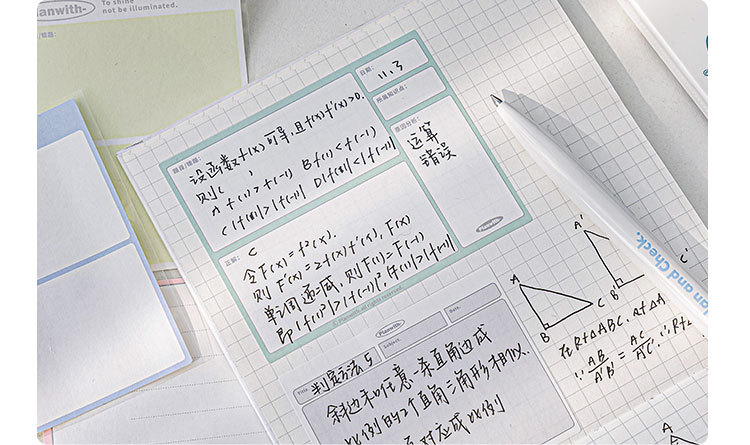 Planwith-
To shine
not be illuminated.
日期:
11.3
所属知识点:
原因分析:
运算
错误
题目/错题:
设函数f(x)可导且f(x)f'(x)>0.
则( )
A f(1)>f(-1) B f(1)<f(-1)
C |f(1)|>|f(-1)| D |f(1)|<|f(-1)|
正解:
C
令F(x)=f²(x).
则F'(x)=2f(x)f'(x), F(x)
单调递减, 则F(1)=F(-1)
即|f(1)|²>|f(-1)|², |f(1)|>|f(-1)|
Planwith-
© Planwith all right reserved.
Planwith-
Title
Subject.
Date.
判定方法5
斜边和任意一条直角边成
比例的2个直角三角形相似..
对应成比例
A
B
C
A'
B'
C'
在Rt△ABC.Rt△A
∵AB/A'B'=AC/A'C' ∴Rt
A
lan and Check.